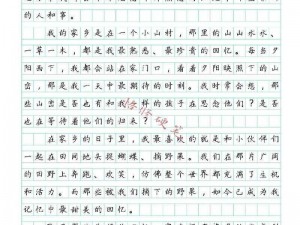 的人和事。
我的家乡是在一个小山村，那里的山山水水、
一草一木，都是我最熟悉、最珍贵的回忆。每当夕
阳西下，我都会站在家门口，看着夕阳映照下的山
峦，那是我一天中最期待的时刻。时常我会想，那些
山峦是否也有和我一样的孩子在思念他们？是否也
在等待着他们的归来？
在家乡的日子里，我最喜欢的就是和小伙伴们
一起在田间地头捉蝴蝶、摘野果。我们在那片广阔
的田野上奔跑、欢笑，仿佛整个世界都充满了生机
和活力。而那些被我们摘下的野果，如今已成为我
记忆中最甜美的回忆。